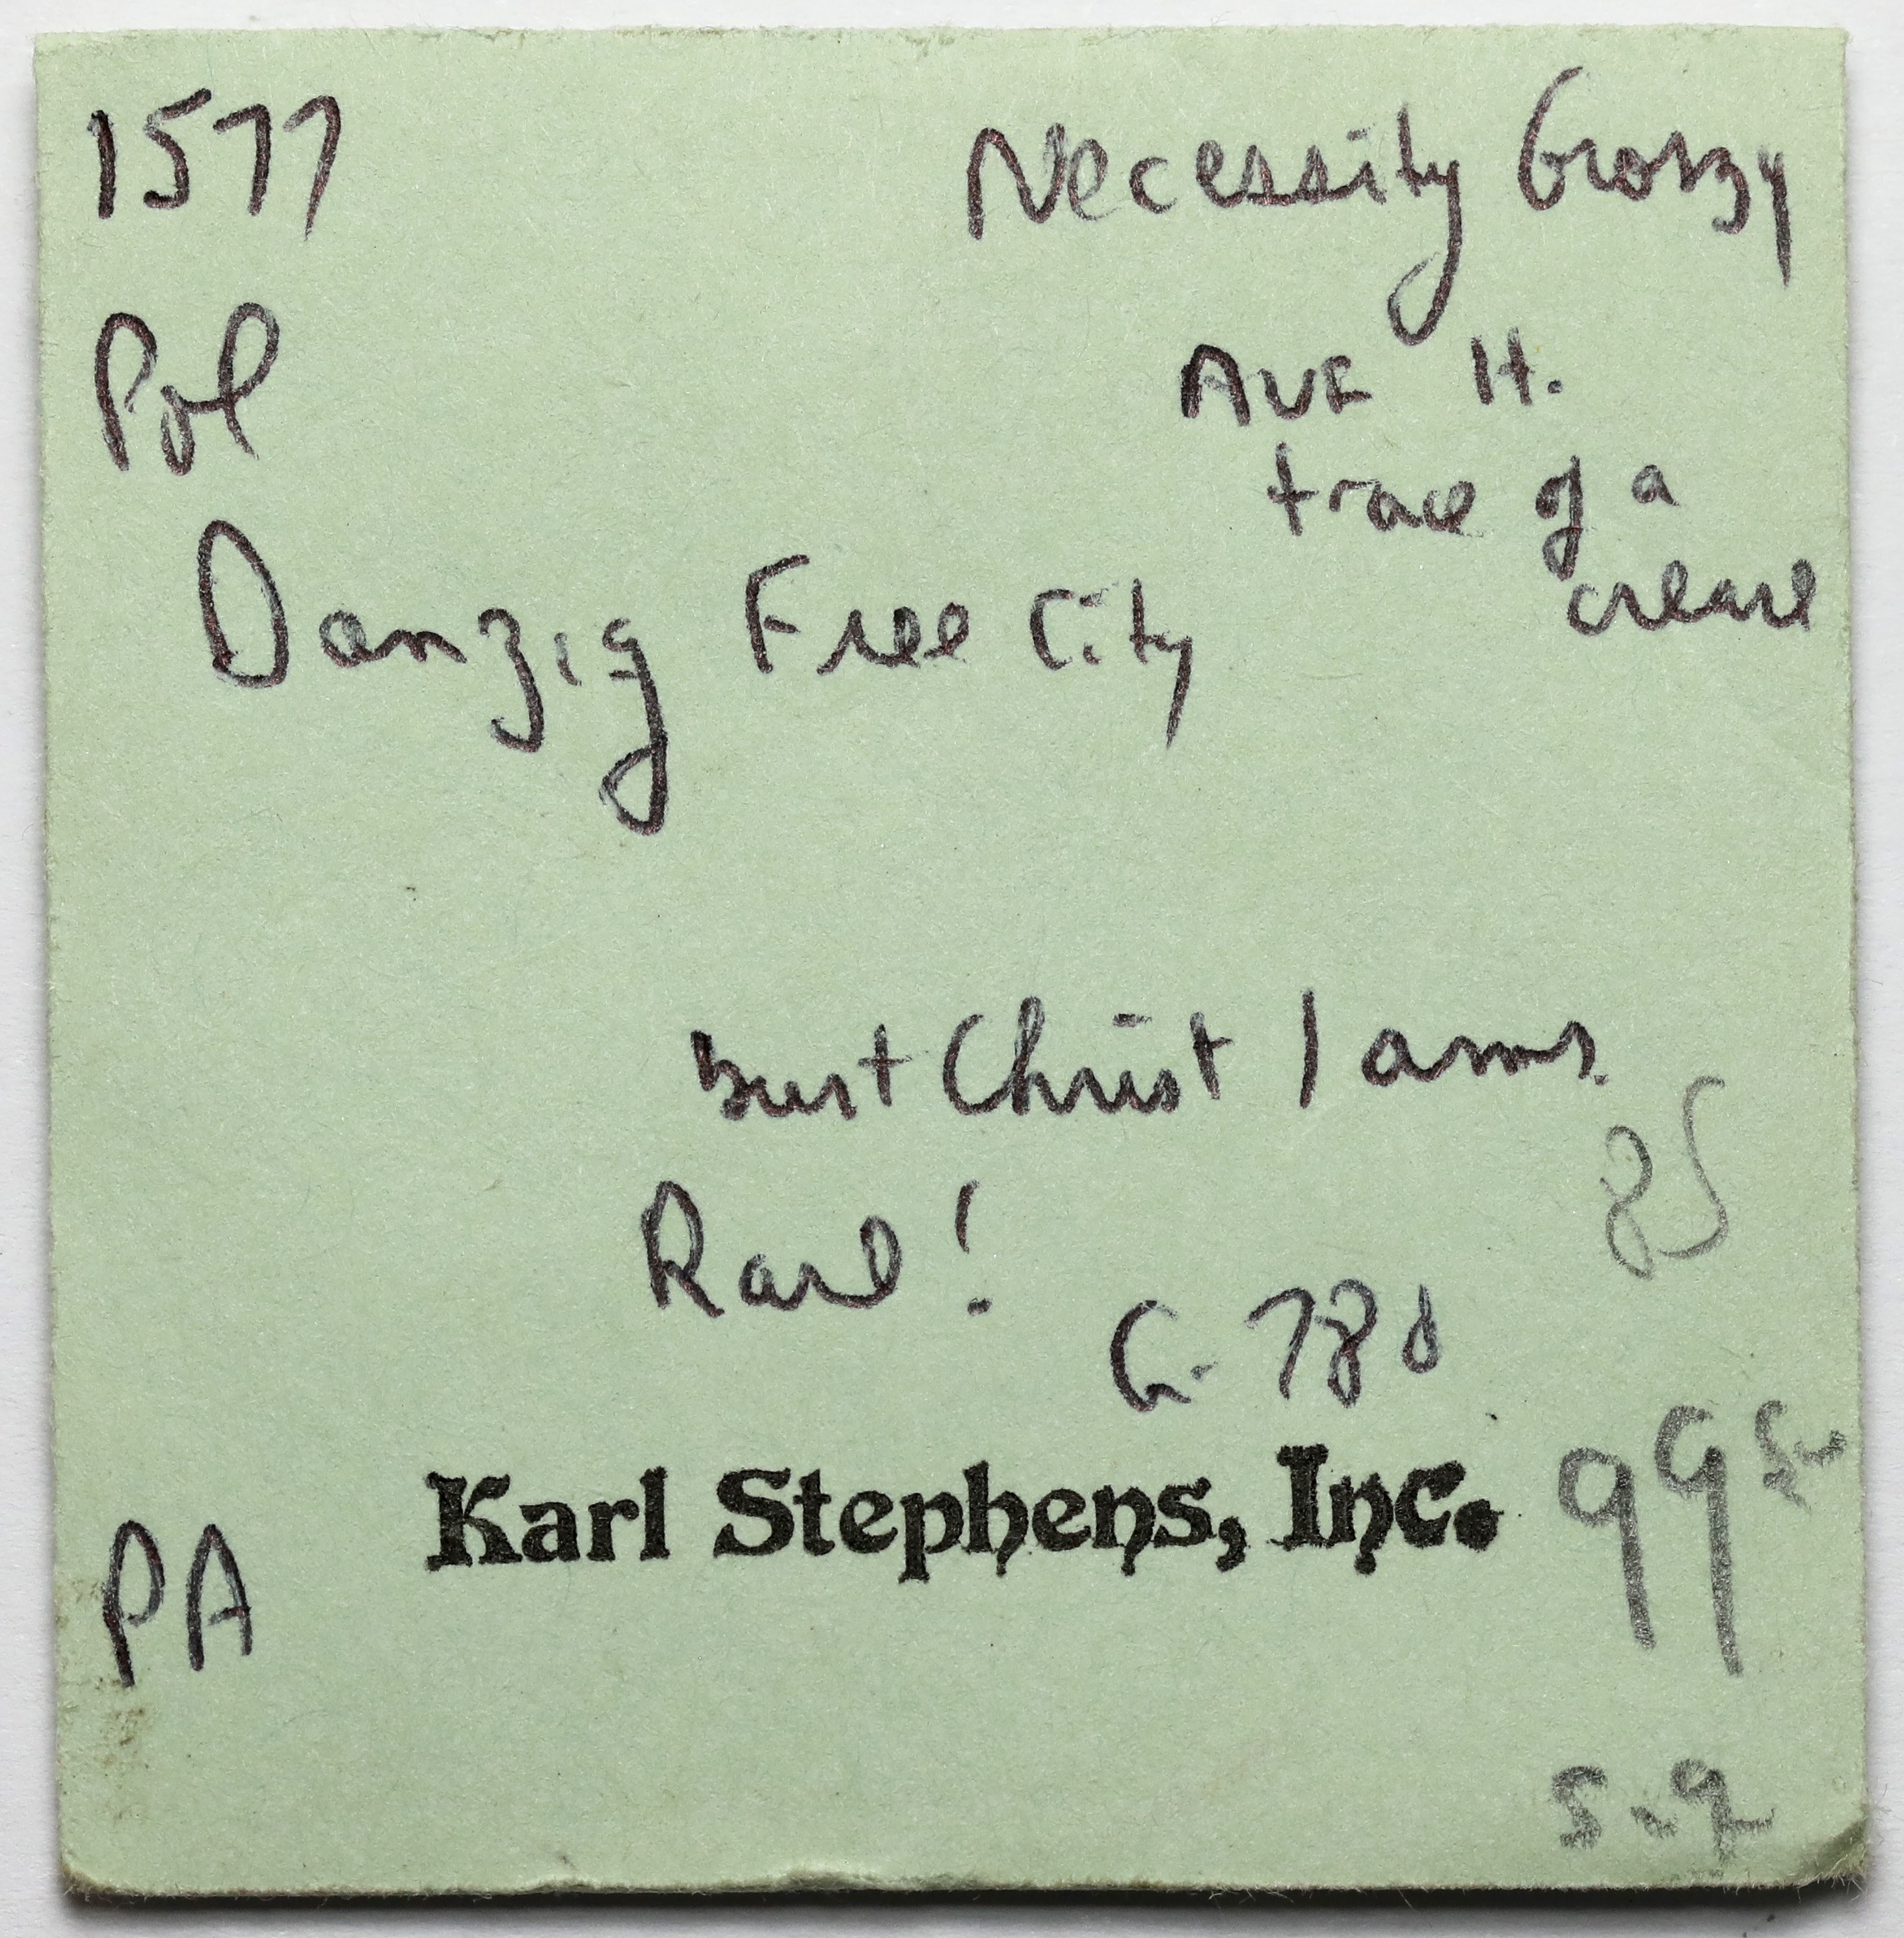 1577
Necessity Groszy
Pol
AVF H.
trace of a
crease
Danzig Free City
bust Christ / arms.
Rare!
85
G-780
Karl Stephens, Inc.
99
PA